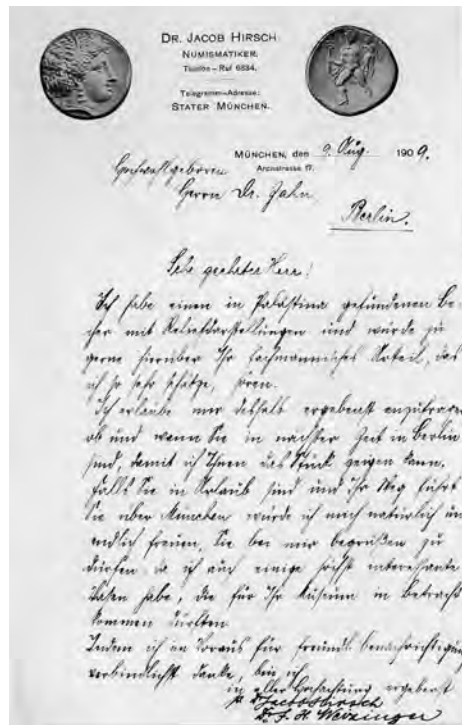 DR. JACOB HIRSCH
NUMISMATIKER.
Telefon-Ruf 6834.
Telegramm-Adresse:
STATER MÜNCHEN.
MÜNCHEN, den 9. Aug. 1909.
Arcisstrasse 17.
Hochwohlgeboren
Herrn Dr. Zahn
Berlin.
Sehr geehrter Herr!
Ich habe einen in Palästina gefundenen Be-
cher mit Reliefdarstellungen und würde zu
gerne hierüber Ihr fachmännisches Urteil, das
ich so sehr schätze, hören.
Ich erlaube mir deshalb ergebenst anzufragen
ob und wann Sie in nächster Zeit in Berlin
sind, damit ich Ihnen das Stück zeigen kann.
Falls Sie in Urlaub sind und Ihr Weg führt
Sie über München würde ich mich natürlich un
endlich freuen, Sie bei mir begrüßen zu
dürfen, da ich auch einige höchst interessante
Vasen habe, die für Ihr Museum in Betracht
kommen dürften.
Indem ich im Voraus für freundl. Benachrichtigung
verbindlichst danke, bin ich
in aller Hochachtung ergebenst
Jacob Hirsch